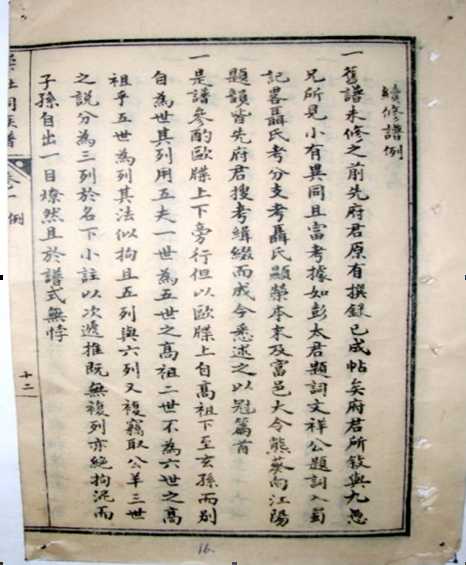 續修譜例
一舊譜未修之前先府君原有撰錄已成帖矣府君所敘與九愚
兄所見小有異同且富考據如彭太君題詞文祥公題詞入蜀
記畧聶氏考分支考聶氏顯榮本末及富邑大令熊葵向江陽
題韻皆先府君搜考緝綴而成今悉述之以冠篇首
一是譜參酌歐牒上下旁行但以歐牒上自高祖下至玄孫而別
自為世其列用五夫一世為五世之高祖二世不為六世之高
祖乎五世為列其法似拘且五列與六列又複竊取公羊三世
之說分為三列於名下小註以次遞推既無複列亦絕拘泥而
子孫自出一目燎然且於譜式無悖
族譜 卷一 例 十二
16.